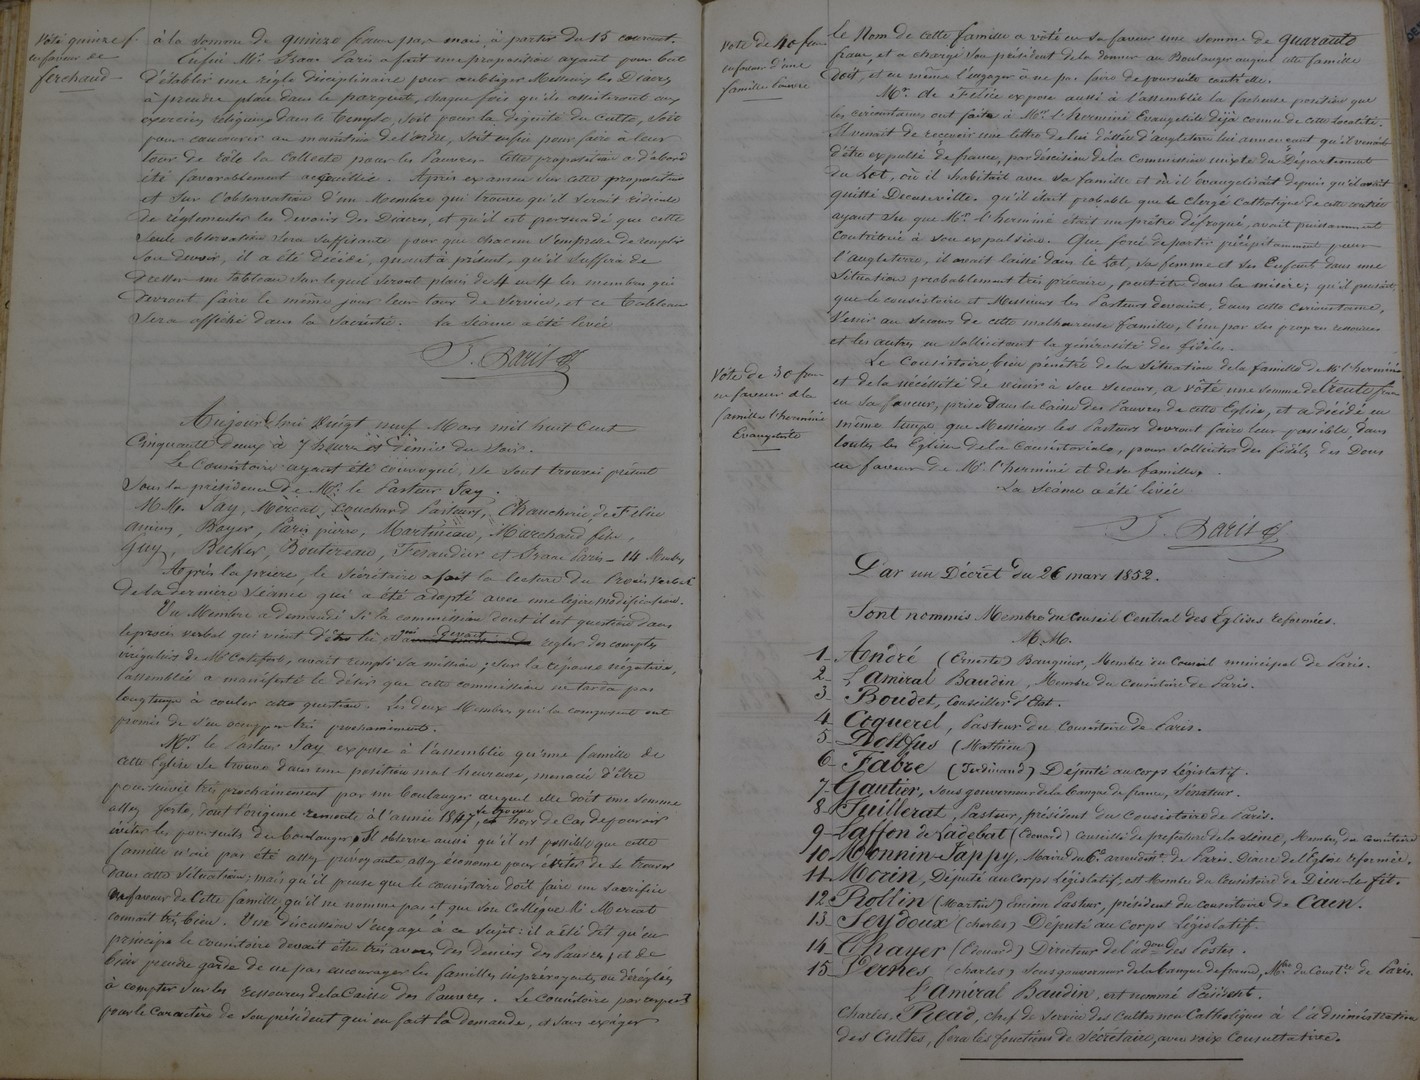 Vote quinze f.
en faveur de
ferchaud
à la somme de quinze francs par mois, à partir du 15 courant.
Enfin Mr. Isaac Paris a fait une proposition ayant pour but
d'établir une règle disciplinaire pour obliger Messieurs les Diacres
à prendre place dans le parquet, chaque fois qu'ils assisteront aux
exercices religieux dans le temple, soit pour la dignité du Culte, soit
pour concourir au maintien de l'ordre, soit enfin pour faire à leur
tour de rôle la collecte pour les Pauvres. Cette proposition a d'abord
été favorablement accueillie. Après examen sur cette proposition
et sur l'observation d'un Membre qui trouve qu'il serait ridicule
de réglementer les devoirs des Diacres, et qu'il est persuadé que cette
seule observation sera suffisante pour que chacun s'empresse de remplir
son devoir, il a été décidé, quant à présent, qu'il suffira de
dresser un tableau sur lequel seront placés de 4 en 4 les membres qui
devront faire le même jour leur tour de service, et ce tableau
sera affiché dans la Sacristie. La séance a été levée
I. Paris
Aujourd'hui Vingt neuf Mars mil huit Cent
Cinquante Deux à 7 heures et demie du Soir.
Le Consistoire ayant été convoqué, se sont trouvés présents
sous la présidence de Mr. le Pasteur Jay.
MM. Jay, Mercat, Douchard Pasteurs, Chaucherie, de Félice
anciens, Boyer, Paris pierre, Martineau, Marchand fils,
Guy, Becker, Boutereau, Ferandier et Isaac Paris – 14 Membres
Après la prière, le Secrétaire a fait la lecture du Procès verbal
de la dernière Séance qui a été adopté avec une légère modification.
Un Membre a demandé si la commission dont il est question dans
le procès verbal qui vient d'être lu et qui devait régler des comptes
irréguliers de Mr Catefort, avait rempli sa mission; sur la réponse négative,
l'assemblée a manifesté le désir que cette commission ne tarda pas
longtemps à couler cette question. Les deux Membres qui la composent ont
promis de s'en occupper très prochainement.
Mr. le Pasteur Jay expose à l'assemblée qu'une famille de
cette Eglise se trouve dans une position malheureuse, menacée d'être
poursuivie très prochainement par un boulanger auquel elle doit une somme
assez forte, dont l'origine remonte à l'année 1847, se trouve hors de Cas de pouvoir
éviter les poursuites du boulanger. Il observe aussi qu'il est possible que cette
famille n'aie pas été assez prévoyante assez économe pour éviter de se trouver
dans cette situation; mais qu'il pense que le consistoire doit faire un sacrifice
en faveur de cette famille qu'il ne nomme pas et que son Collègue Mr Mercat
connait très bien. Une discussion s'engage à ce sujet: il a été dit qu'en
principe le consistoire devait être très avare des deniers des Pauvres, et de
bien prendre garde de ne pas encourager les familles imprévoyantes ou déréglées
à compter sur les ressources de la Caisse des Pauvres. Le consistoire par respect
pour le caractère de son président qui en fait la demande, et sans exiger
Vote de 40 fran
en faveur d'une
famille Pauvre
le Nom de cette famille a voté en sa faveur une somme de quarante
francs, et a chargé son président de la donner au Boulanger auquel cette famille
doit, et en même l'engager à ne pas faire de poursuite contr'elle.
Mr. de Félice expose aussi à l'assemblée la facheuse position que
les circonstances ont faite à Mr. l'herminé Evangéliste déjà connu de cette localité.
Il venait de recevoir une lettre de lui datée d'angleterre lui annonçant qu'il venait
d'être expulsé de france, par décision de la Commission mixte du Département
du Lot, où il habitait avec sa famille et où il évangélisait depuis qu'il avait
quitté Denneville. qu'il était probable que le clergé Catholique de cette contrée
ayant su que Mr. l'herminé était un prêtre défroqué, avait puissamment
contribué à son expulsion. Que forcé de partir précipitamment pour
l'angleterre, il avait laissé dans le Lot, sa femme et ses Enfants dans une
situation probablement très précaire, peut être dans la misère; qu'il pensait
que le consistoire et Messieurs les Pasteurs devaient, dans cette circonstance,
venir au secours de cette malheureuse famille, l'un par ses propres ressources
et les autres en sollicitant la générosité des fidèles.
Vote de 30 fran
en faveur de la
famille l'herminé
Evangéliste
Le Consistoire, bien pénétré de la situation de la famille de Mr l'herminé
et de la nécessité de venir à son secours, a voté une somme de trente francs
en sa faveur, prise dans la Caisse des Pauvres de cette Eglise, et a décidé en
même temps que Messieurs les Pasteurs devront faire leur possible, dans
toutes les Eglises de la Consistoriale, pour solliciter des fidèles des Dons
en faveur de Mr. l'herminé et de sa famille.
La Séance a été levée
I. Paris
Par un Décret du 26 mars 1852.
Sont nommés Membres du Conseil Central des Eglises reformées.
M.M.
1 – André (Ernest) Banquier, Membre du Conseil municipal de Paris.
2 – L'amiral Baudin, Membre du Consistoire de Paris.
3 – Boudet, Conseiller d'Etat.
4 – Coquerel, Pasteur du Consistoire de Paris.
5 – Dollfus (Mathieu)
6 – Fabre (Ferdinand) Député au corps législatif.
7 – Gautier, Sous gouverneur de la banque de france, Sénateur.
8 – Juillerat, Pasteur, président du Consistoire de Paris.
9 – Laffon de Ladebat (Edouard) Conseiller de prefecture de la Seine, Membre du consistoire
10 – Monnin-Jappy, Maire du 6e. arrondmt. de Paris. Diacre de l'Eglise reformée.
11 – Morin, Député au Corps législatif, est Membre du Consistoire de Dieu-le-fit.
12 Rollin (Martin) Ancien Pasteur, président du consistoire de Caen.
13 – Seydoux (Charles) Député au Corps législatif.
14 – Thayer (Edouard) Directeur de l'adon. des Postes.
15 – Vernes (Charles) Sous gouverneur de la banque de france, Mbre du Const.re de Paris.
L'Amiral Baudin, est nommé Président.
Charles, Read, chef de service des Cultes non Catholiques à l'administration
des Cultes, fera les fonctions de Secrétaire, avec voix Consultative.